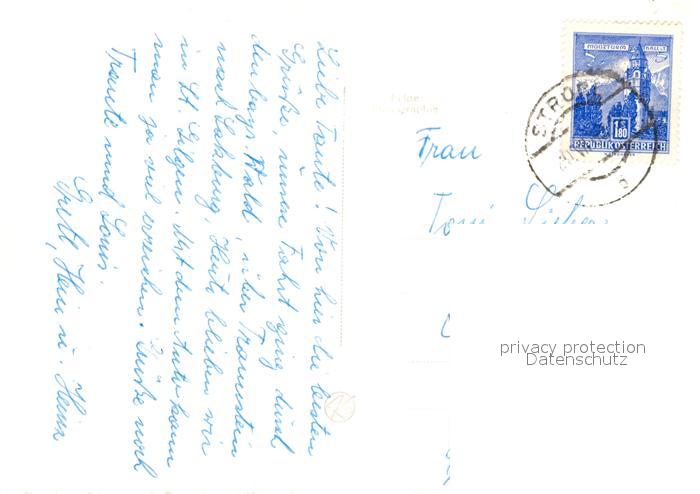 Liebe Tante! Von hier die besten
Grüße, unsere Fahrt ging durch
den bayr. Wald, über Traunstein
nach Salzburg. Heute bleiben wir
in St. Gilgen. Mit dem Auto kann
man ja viel erreichen. Grüße noch
Traute und Louis.
Gretl, Heini u. Heinz
Frau
Toni
MÜNZTURM HALL i.T.
S 1.80
REPUBLIK ÖSTERREICH
STROBL
b
K
privacy protection
Datenschutz